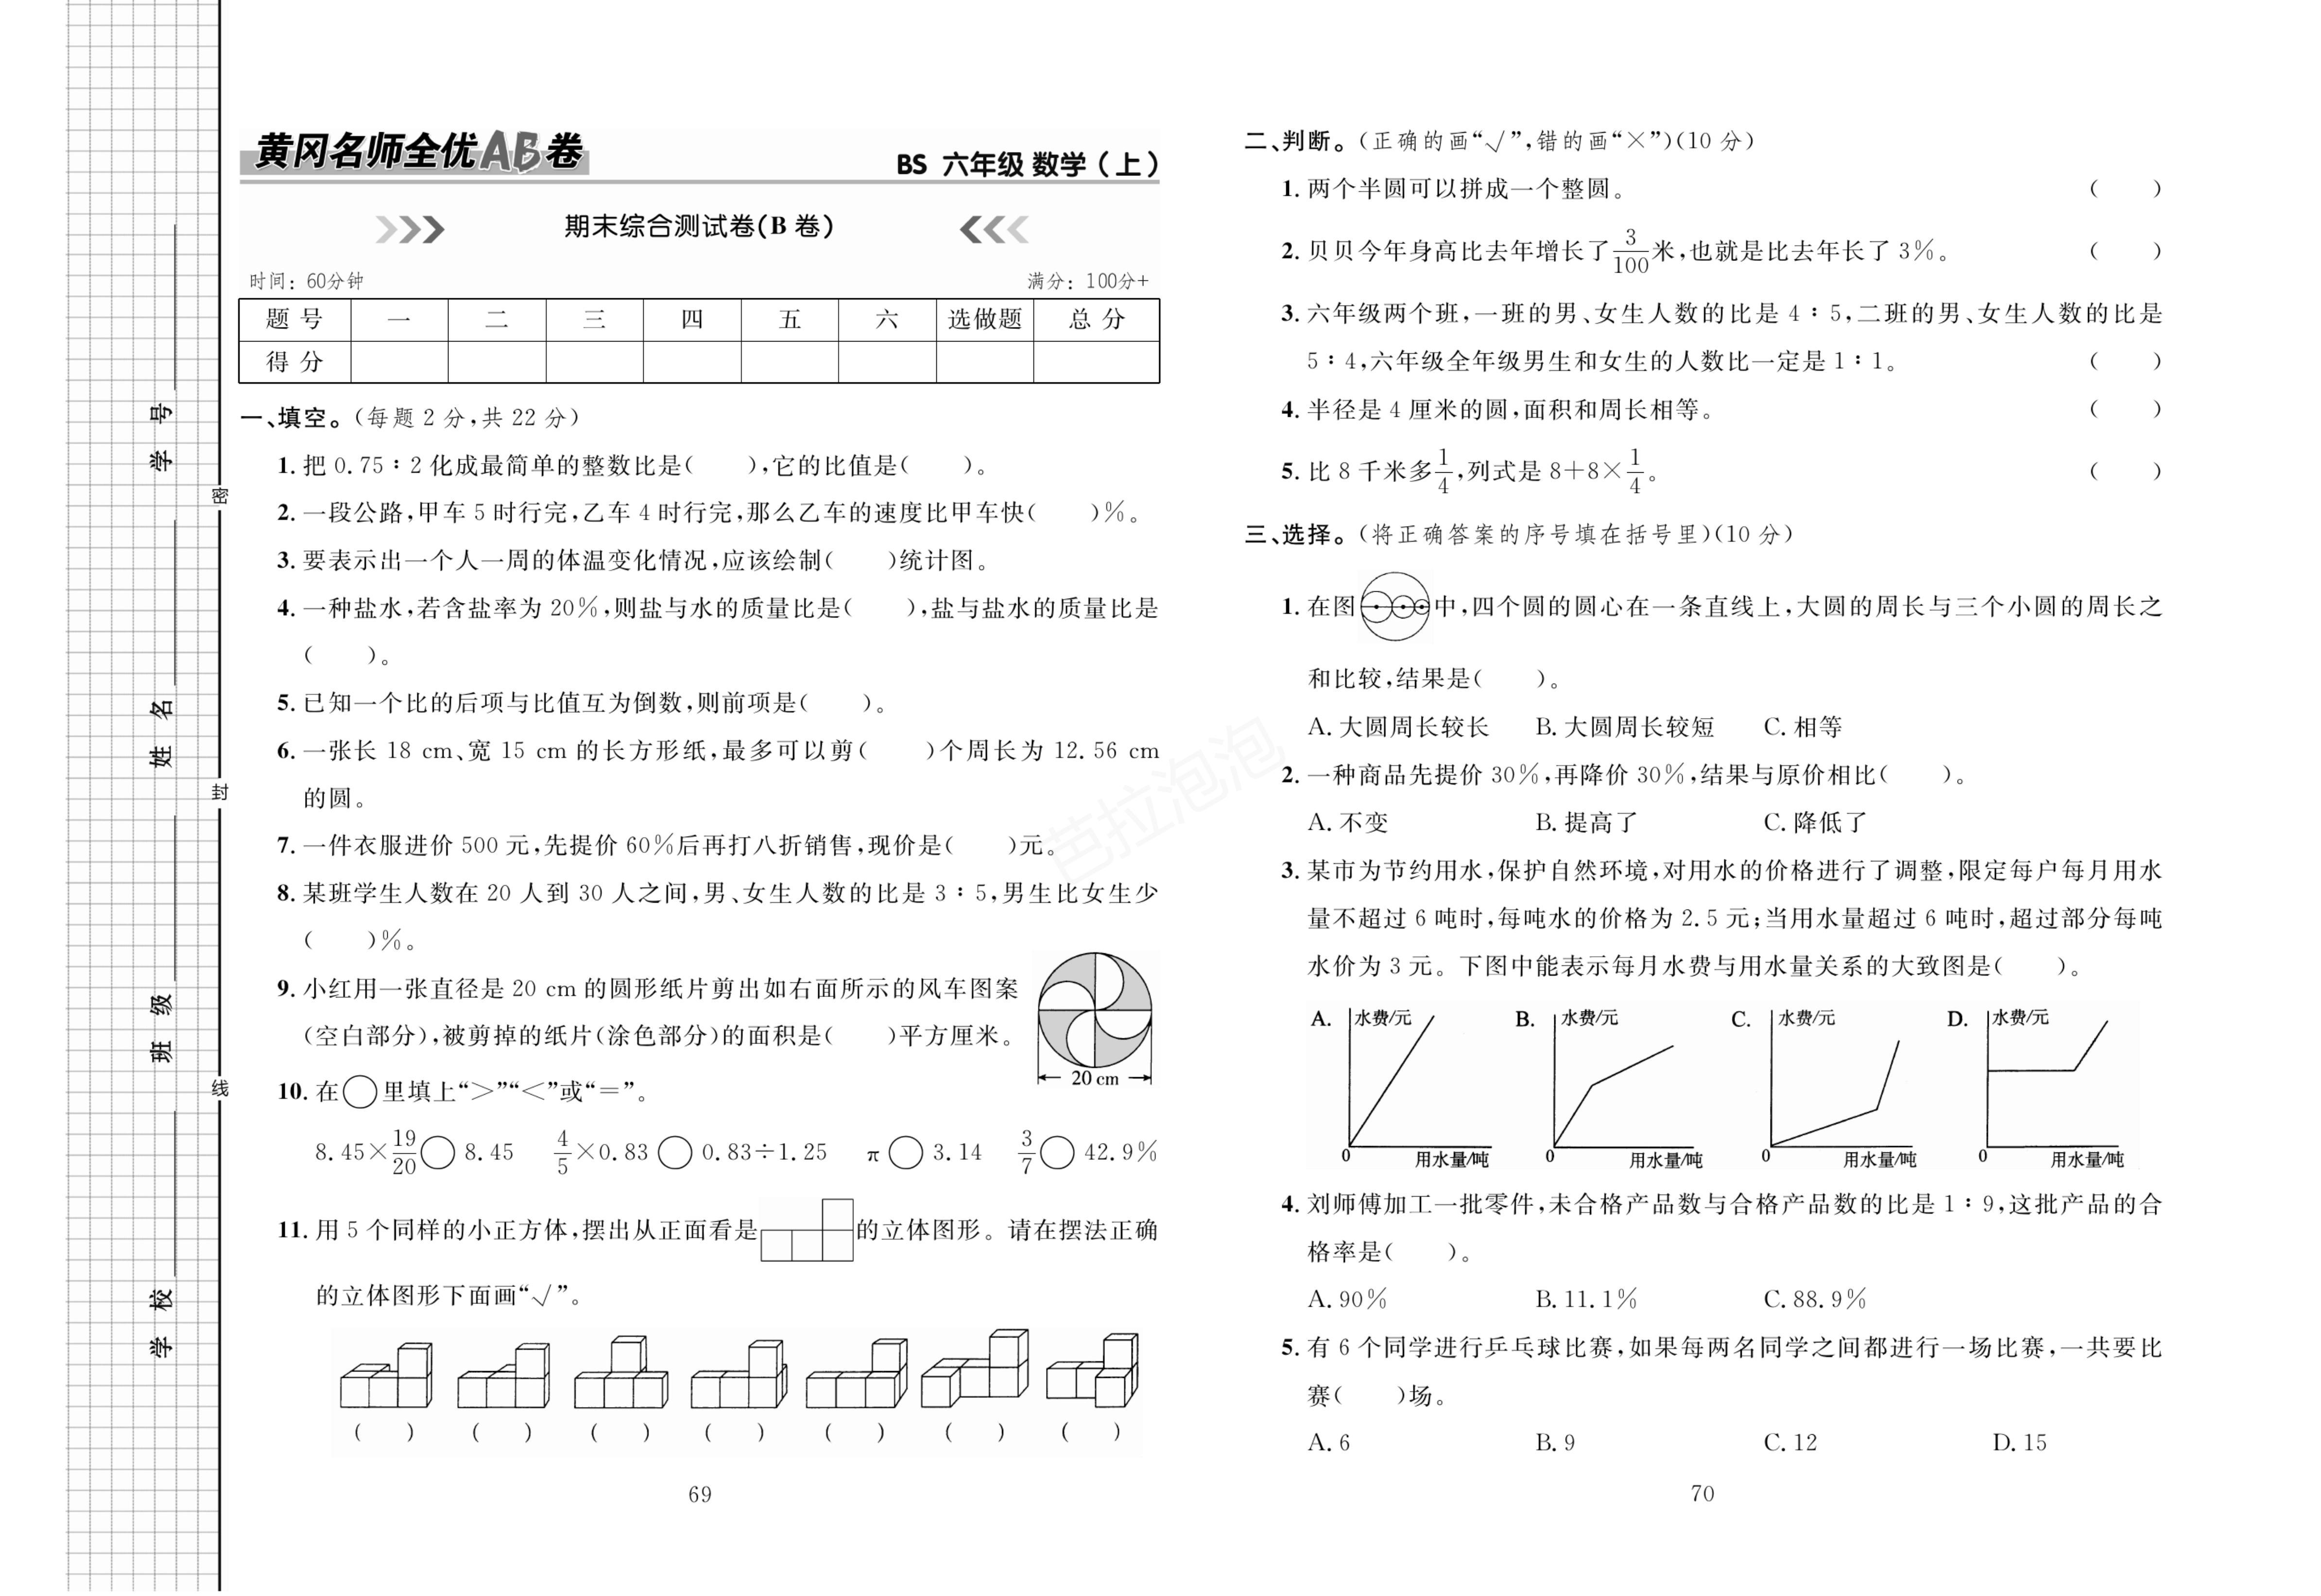 学 号
姓 名
班 级
学 校
密
封
线
黄冈名师全优AB卷
BS 六年级 数学(上)
期末综合测试卷(B 卷)
时间: 60分钟
满分: 100分+
题 号 一 二 三 四 五 六 选做题 总 分
得 分
一、填空。(每题 2 分,共 22 分)
1. 把 0.75∶2 化成最简单的整数比是(  ),它的比值是(  )。
2. 一段公路,甲车 5 时行完,乙车 4 时行完,那么乙车的速度比甲车快(  )%。
3. 要表示出一个人一周的体温变化情况,应该绘制(  )统计图。
4. 一种盐水,若含盐率为 20%,则盐与水的质量比是(  ),盐与盐水的质量比是
(  )。
5. 已知一个比的后项与比值互为倒数,则前项是(  )。
6. 一张长 18 cm、宽 15 cm 的长方形纸,最多可以剪(  )个周长为 12.56 cm
的圆。
7. 一件衣服进价 500 元,先提价 60%后再打八折销售,现价是(  )元。
8. 某班学生人数在 20 人到 30 人之间,男、女生人数的比是 3∶5,男生比女生少
(  )%。
9. 小红用一张直径是 20 cm 的圆形纸片剪出如右面所示的风车图案
(空白部分),被剪掉的纸片(涂色部分)的面积是(  )平方厘米。
20 cm
10. 在○里填上“>”“<”或“=”。
8.45×19/20○8.45  4/5×0.83○0.83÷1.25  π○3.14  3/7○42.9%
11. 用 5 个同样的小正方体,摆出从正面看是 的立体图形。请在摆法正确
的立体图形下面画“√”。
(  ) (  ) (  ) (  ) (  ) (  ) (  )
69
二、判断。(正确的画“√”,错的画“×”)(10 分)
1. 两个半圆可以拼成一个整圆。 (  )
2. 贝贝今年身高比去年增长了3/100米,也就是比去年长了 3%。 (  )
3. 六年级两个班,一班的男、女生人数的比是 4∶5,二班的男、女生人数的比是
5∶4,六年级全年级男生和女生的人数比一定是 1∶1。 (  )
4. 半径是 4 厘米的圆,面积和周长相等。 (  )
5. 比 8 千米多1/4,列式是 8+8×1/4。 (  )
三、选择。(将正确答案的序号填在括号里)(10 分)
1. 在图 中,四个圆的圆心在一条直线上,大圆的周长与三个小圆的周长之
和比较,结果是(  )。
A. 大圆周长较长 B. 大圆周长较短 C. 相等
2. 一种商品先提价 30%,再降价 30%,结果与原价相比(  )。
A. 不变 B. 提高了 C. 降低了
3. 某市为节约用水,保护自然环境,对用水的价格进行了调整,限定每户每月用水
量不超过 6 吨时,每吨水的价格为 2.5 元;当用水量超过 6 吨时,超过部分每吨
水价为 3 元。下图中能表示每月水费与用水量关系的大致图是(  )。
A. 水费/元 B. 水费/元 C. 水费/元 D. 水费/元
0 用水量/吨 0 用水量/吨 0 用水量/吨 0 用水量/吨
4. 刘师傅加工一批零件,未合格产品数与合格产品数的比是 1∶9,这批产品的合
格率是(  )。
A. 90% B. 11.1% C. 88.9%
5. 有 6 个同学进行乒乓球比赛,如果每两名同学之间都进行一场比赛,一共要比
赛(  )场。
A. 6 B. 9 C. 12 D. 15
70
芭拉泡泡